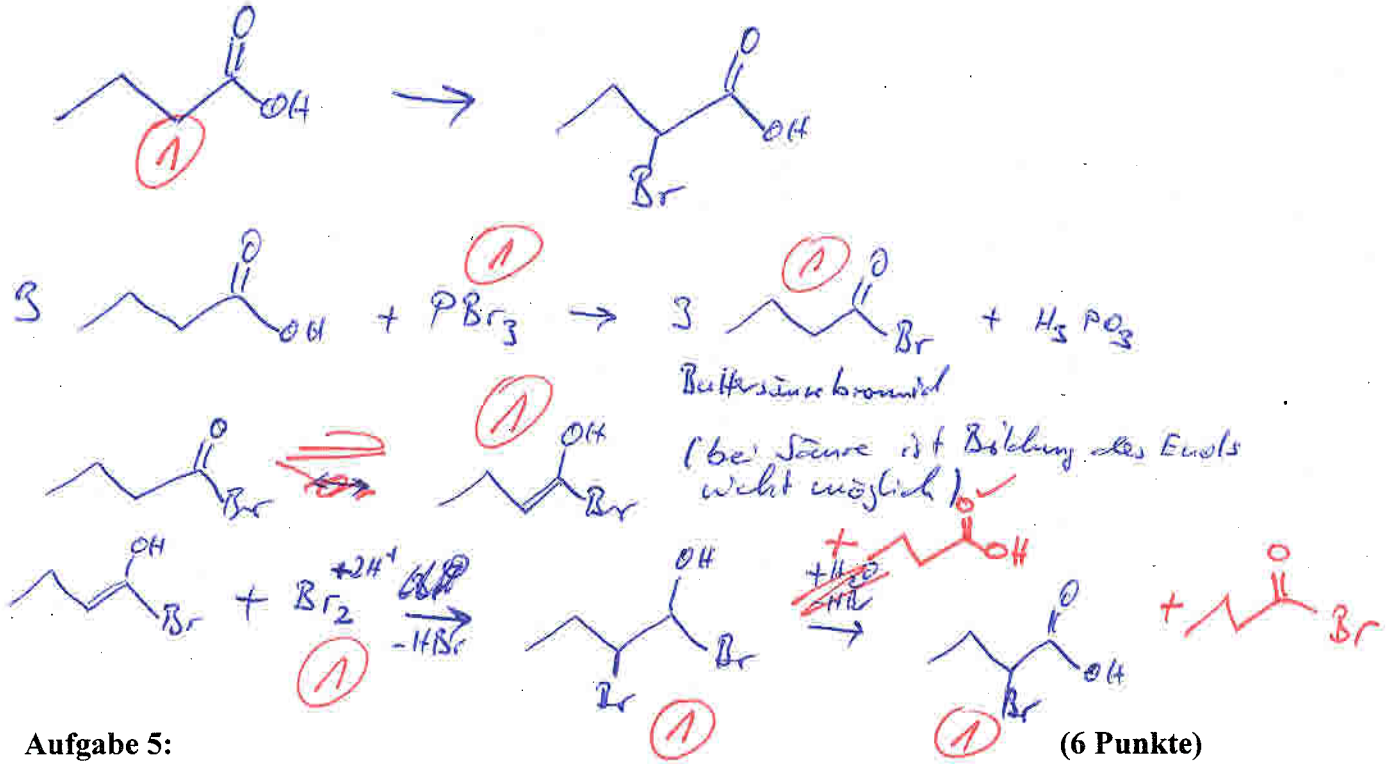 O OH → O OH Br
1
3 O OH + PBr3 → 3 O Br + H3PO3
1 1
Buttersäurebromid
O Br OH Br (bei Säure ist Bildung des Enols
1
nicht möglich) ✓
OH Br + Br2 +2H+ -HBr OH Br Br +H2O → O OH Br + O Br
+ O OH
1 1 1
Aufgabe 5: (6 Punkte)